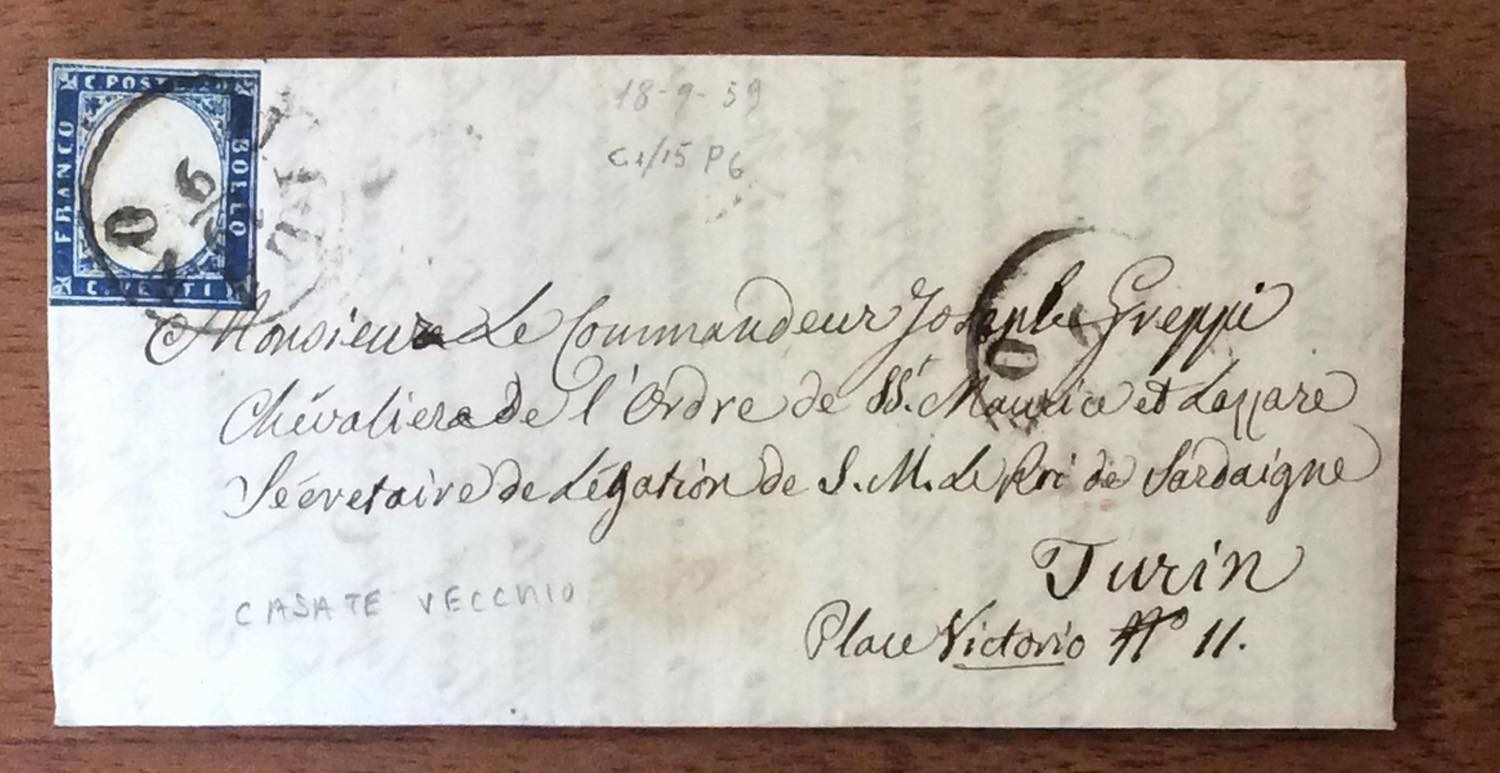 C. POSTE 20
FRANCO
BOLLO
C. VENTI
18-9-59
C1/15 P6
Monsieur Le Commandeur Joseph Greppi
Chévalier de l'Ordre de SS.t Maurice et Lazzare
Sécretaire de Légation de S. M. Le Roi de Sardaigne
Turin
Place Victorio N° 11.
CASATE VECCHIO